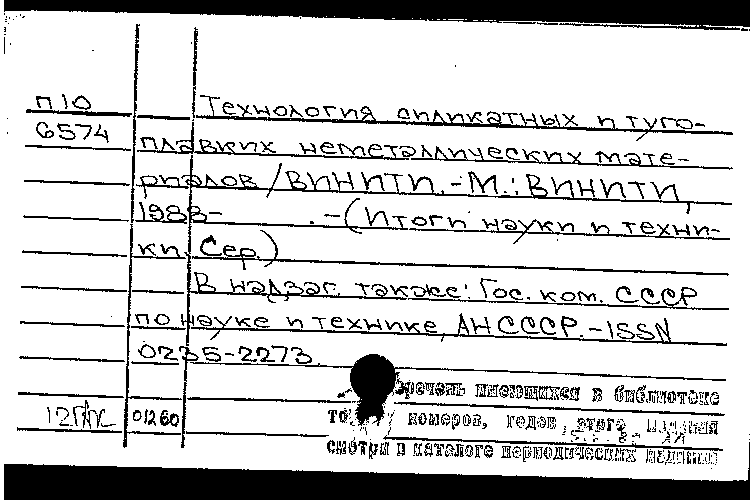 П10 Технология силикатных и туго-
6574 плавких неметаллических мате-
риалов / ВИНИТИ. - М.: ВИНИТИ,
1988- . - (Итоги науки и техни-
ки. Сер.)
В надзаг. также: Гос. ком. СССР
по науке и технике, АН СССР. - ISSN
0235-2273.
имеющихся в библиотеке
01260 номеров, годов, этого издания
смотри в каталоге периодических изданий